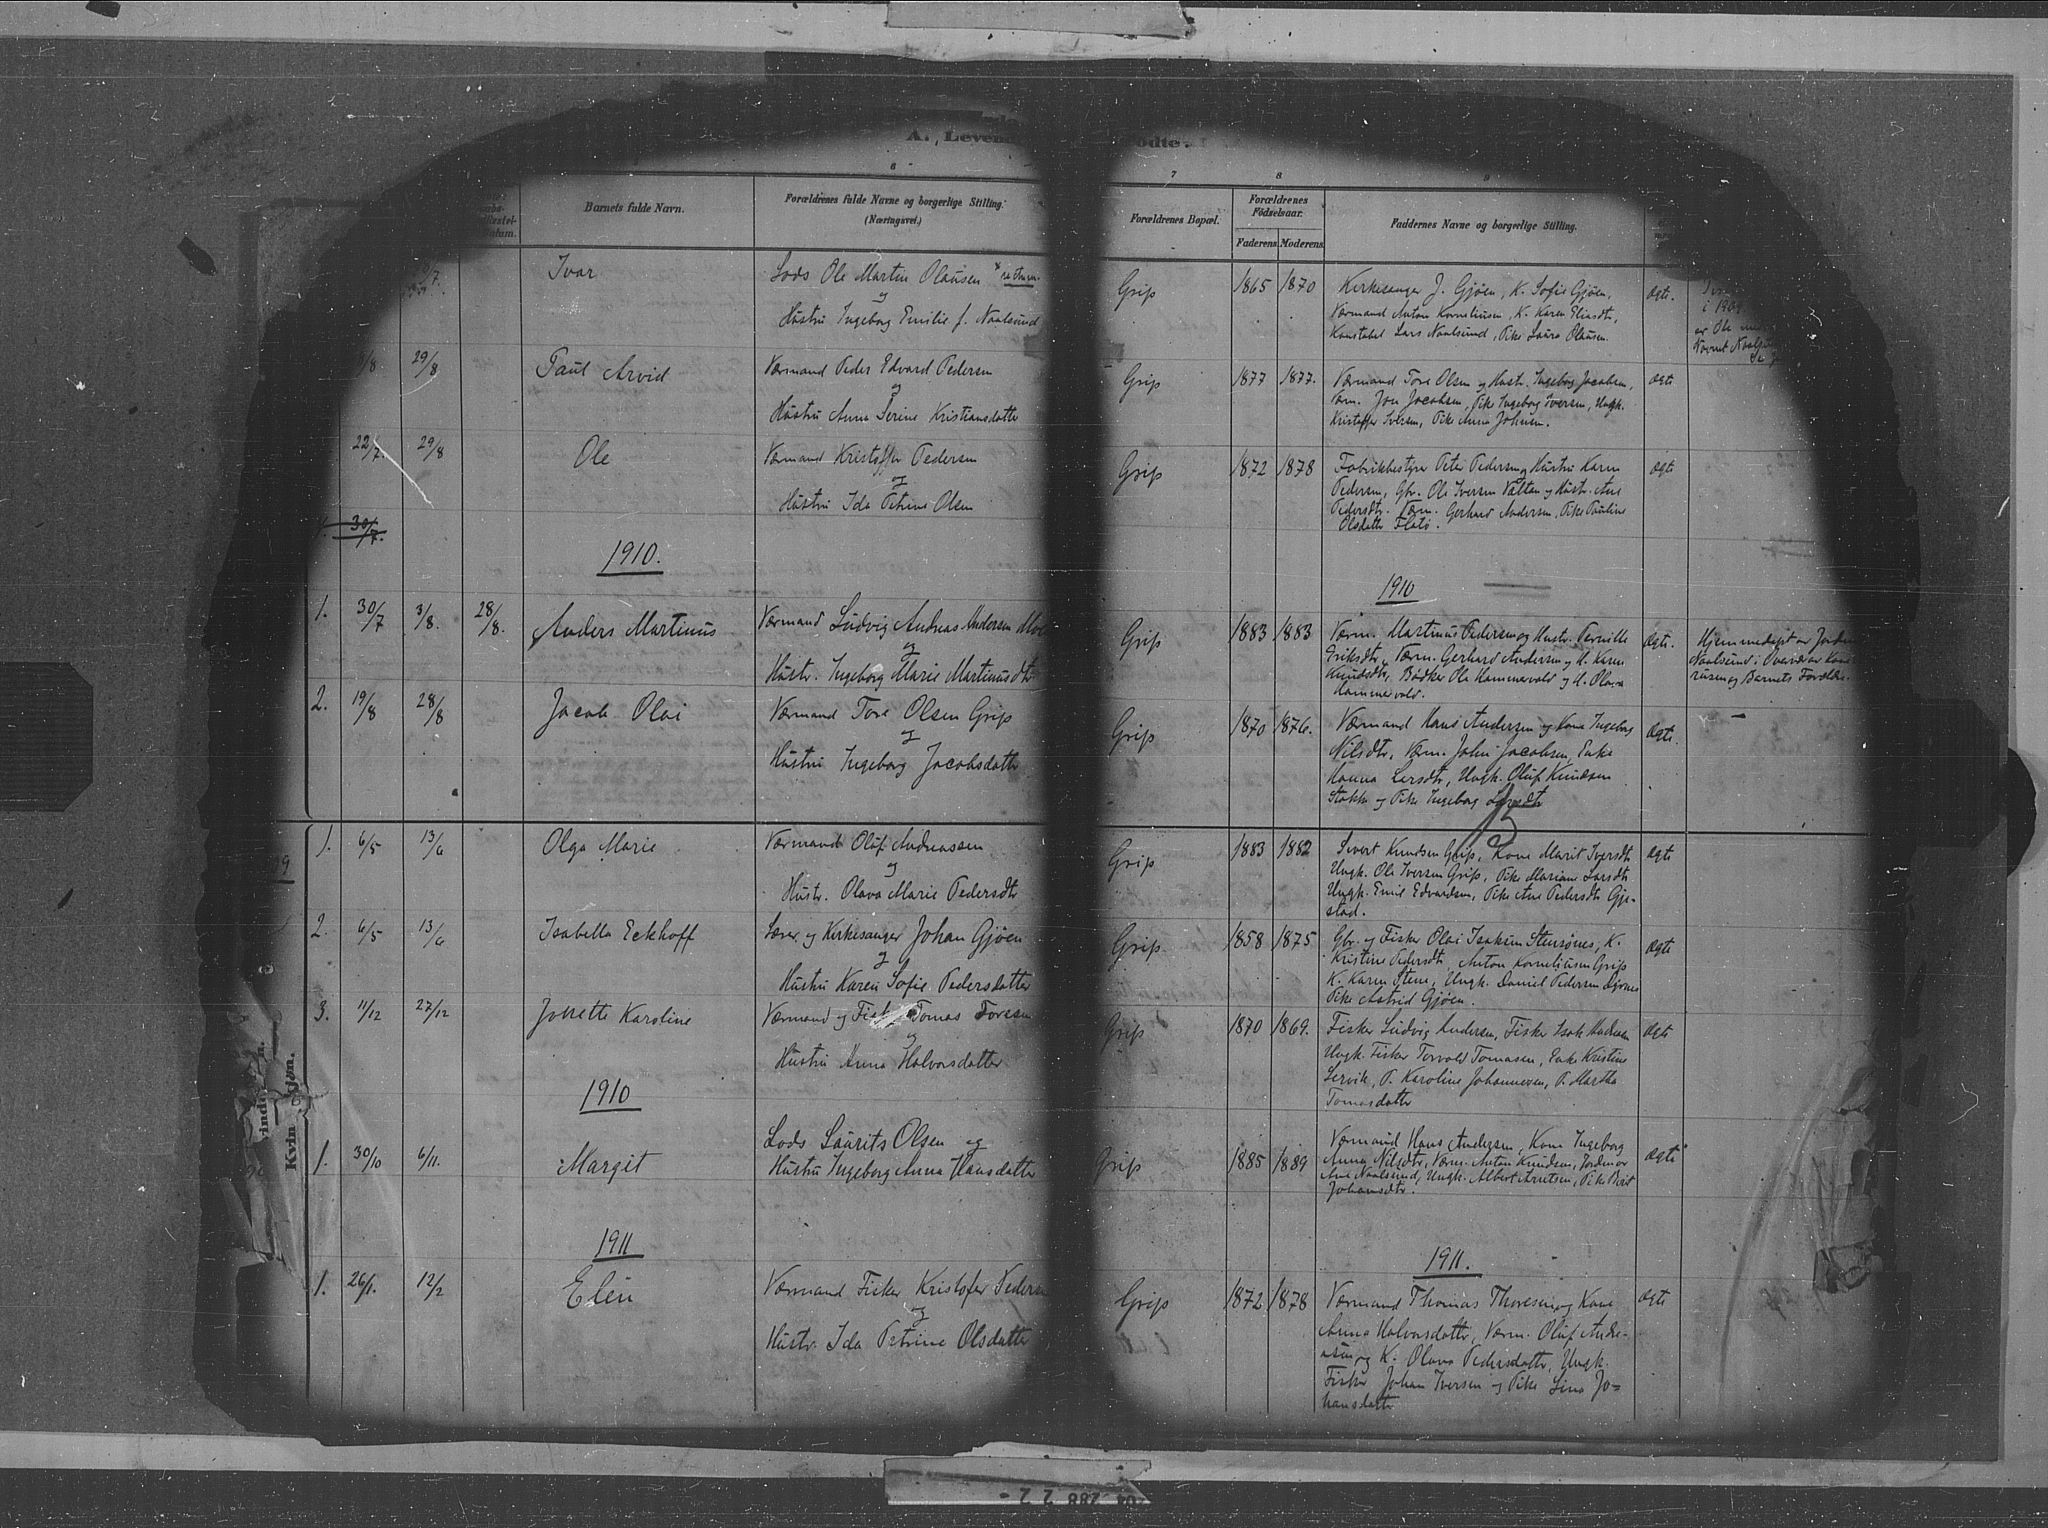 A. Leven
ødte.
6
7
8
9
Barnets fulde Navn.
Forældrenes fulde Navne og borgerlige Stilling.
(Næringsvei.)
Forældrenes Bopæl.
Forældrenes
Fødselsaar.
Faderens. Moderens.
Faddernes Navne og borgerlige Stilling.
Ivar
Lods Ole Martin Olausen
og
Hustru Ingeborg Emilie f. Naalsund
Grip
1865 1870
Kirkesanger J. Gjøen, K. Sofie Gjøen,
Værmand Anton Korneliusen, K. Karen Eliasdtr,
Konstabel Lars Naalsund, Pike Laura Olausen.
Ægte.
29/8
Paul Arvid
Værmand Peder Edvard Pedersen
og
Hustru Anna Serine Kristiansdatter
Grip
1877 1877.
Værmand Tore Olsen og Hustr. Ingeborg Jacobsen,
Værm. Jon Jacobsen, Pike Ingeborg Iversen, Ungk.
Kristoffer Iversen, Pike Anna Johnsen.
Ægte
22/7. 29/8
Ole
Værmand Kristoffer Pedersen
og
Hustru Ida Petrine Olsen
Grip
1872 1878
Fabrikbestyrer Peter Pedersen og Hustru Karen
Pedersen, Gbr. Ole Iversen Vatten og Hustr. Ane
Pedersdtr. Værm. Gerhard Andersen, Pike Pauline
Olsdatter Flatø.
Ægte
1. 30/7.
1910.
1910
1. 30/7 3/8. 28/8.
Anders Martinus
Værmand Ludvig Andreas Andersen
og
Hustr. Ingeborg Marie Martinusdtr
Grip
1883 1883
Værm. Martinus Pedersen og Hustr. Pernille
Eriksdtr, Værm. Gerhard Andersen og H. Karen
Knudsdtr, Bødker Ole Hammervold og H. Olava
Hammervold.
Ægte.
Hjemmedøpt av
Naalsund i Overvær av
og Barnets Forældre.
2. 19/8 28/8
Jacob Olai
Værmand Tore Olsen Grip
og
Hustru Ingeborg Jacobsdatter
Grip
1870 1876.
Værmand Hans Andersen og Kone Ingeborg
Nilsdtr, Værm. John Jacobsen, Enke
Hanna Larsdtr, Ungk. Oluf Knudsen
Stokke og Pike Ingeborg Larsdtr
Ægte.
1. 6/5 13/6
Olga Marie
Værmand Oluf Andreassen
og
Hustr. Olava Marie Pedersdtr
Grip
1883 1882
Sivert Knudsen Grip, Kone Marit Iversdtr
Ungk. Ole Iversen Grip, Pike Mariane Larsdtr
Ungk. Emil Edvardsen, Pike Ane Pedersdtr Gje-
stad.
Ægte
2. 6/5 13/6
Isabella Eckhoff
Lærer og Kirkesanger Johan Gjøen
og
Hustru Karen Sofie Pedersdatter
Grip
1858 1875
Gbr. og Fisker Olai Isaksen Stensønes, K.
Kristine Pedersdtr. Anton Korneliusen Grip
K. Karen Stene, Ungk. Daniel Pedersen
Pike Astrid Gjøen.
Ægte
3. 11/12 27/12
Josette Karoline
Værmand og Fisker Tomas Toresen
og
Hustru Anna Halvorsdatter
Grip
1870 1869.
Fisker Ludvig Andersen, Fisker Isak
Ungk. Fisker Torvald Tomasen, Enke Kristine
Lervik, P. Karoline Johannesen, P. Martha
Tomasdatter
Ægte
Kvindekjøn.
1910
1. 30/10 6/11.
Margit
Lods Laurits Olsen og
Hustru Ingeborg Anna Hansdatter
Grip
1885 1889
Værmand Hans Andersen, Kone Ingeborg
Anna Nilsdtr, Værm. Anton Knudsen, Jordmor
Ane Naalsund, Ungk. Albert Arntsen, Pike Berit
Johansdtr.
Ægte
1911
1911.
1. 26/1. 12/2
Elen
Værmand Fisker Kristofer Pedersen
og
Hustr. Ida Petrine Olsdatter
Grip
1872 1878
Værmand Thomas Thoresen og Kone
Anna Halvorsdatter, Værm. Oluf Andre-
asen og K. Olava Pedersdatter, Ungk.
Fisker Johan Iversen og Pike Lina Jo-
hansdatter
Ægte